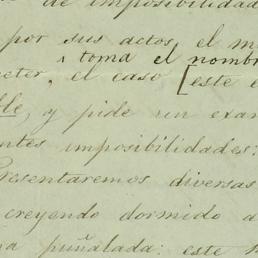 de imposibilidad
por sus actos, el m
toma el nombr
eter, el caso [este e
ble, y pide un exam
ntes imposibilidades:
Presentaremos diversas
creyendo dormido a
na puñalada: este h